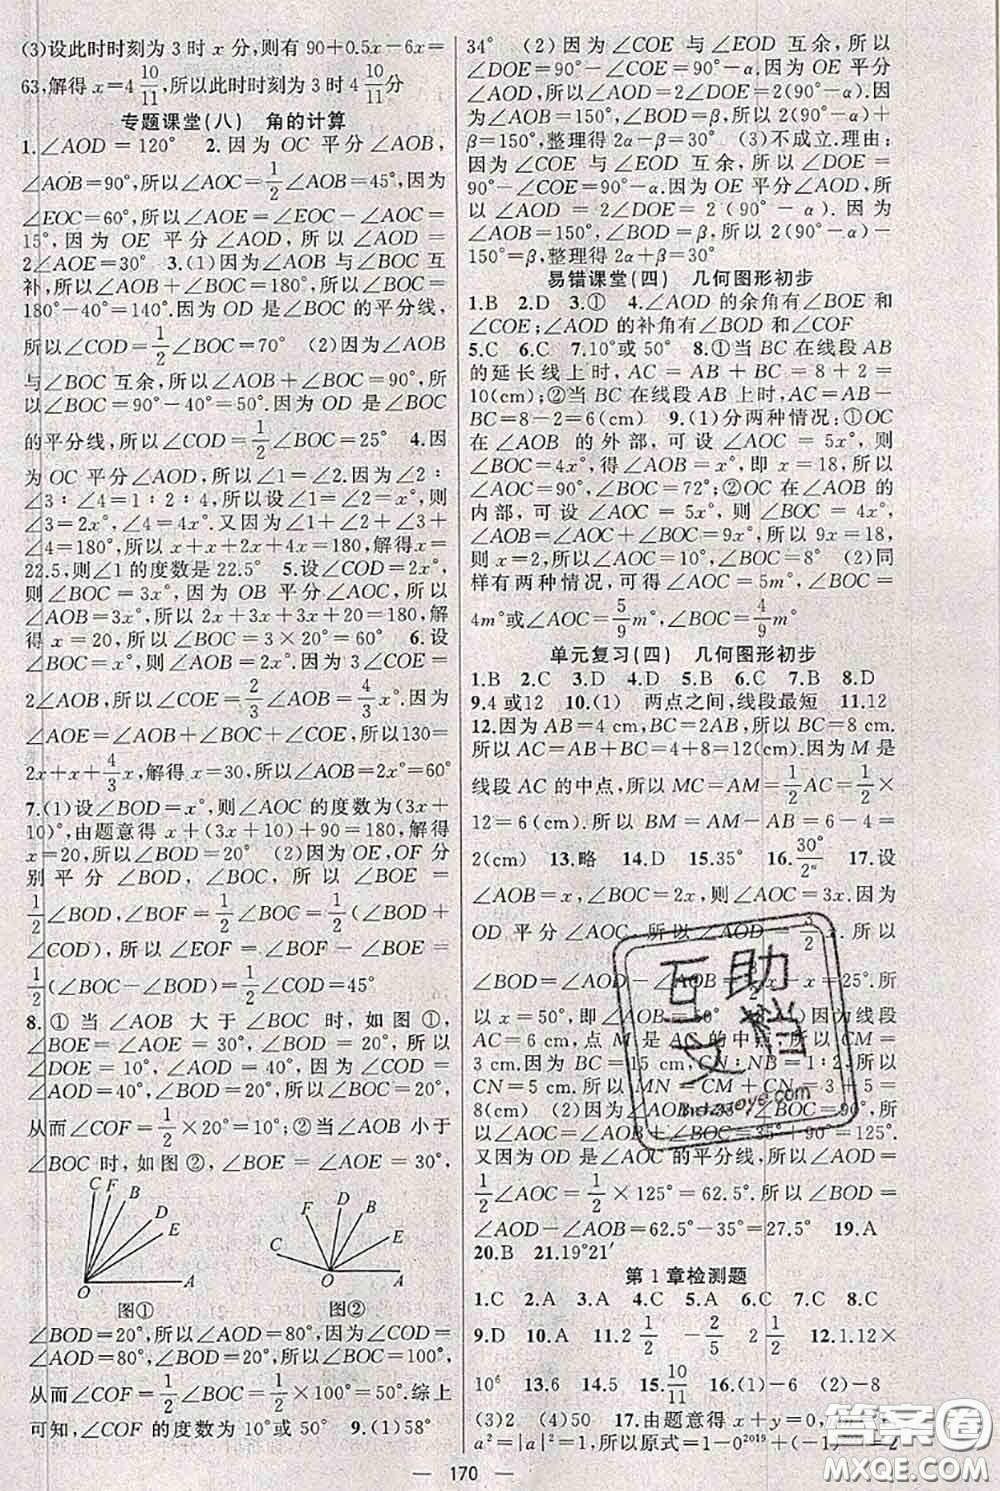 (3)设此时时刻为3时x分,则有90+0.5x-6x=
63,解得x=4 10/11,所以此时时刻为3时4 10/11分
专题课堂(八) 角的计算
1.∠AOD=120° 2.因为OC平分∠AOB,
∠AOB=90°,所以∠AOC=1/2∠AOB=45°,因为
∠EOC=60°,所以∠AOE=∠EOC-∠AOC=
15°,因为OE平分∠AOD,所以∠AOD=
2∠AOE=30° 3.(1)因为∠AOB与∠BOC互
补,所以∠AOB+∠BOC=180°,所以∠BOC=
180°-40°=140°.因为OD是∠BOC的平分线,
所以∠COD=1/2∠BOC=70° (2)因为∠AOB
与∠BOC互余,所以∠AOB+∠BOC=90°,所以
∠BOC=90°-40°=50°.因为OD是∠BOC
的平分线,所以∠COD=1/2∠BOC=25° 4.因
为OC平分∠AOD,所以∠1=∠2.因为∠2∶
∠3∶∠4=1∶2∶4,所以设∠1=∠2=x°,则
∠3=2x°,∠4=4x°.又因为∠1+∠2+∠3+
∠4=180°,所以x+x+2x+4x=180,解得x=
22.5,则∠1的度数是22.5° 5.设∠COD=2x°,
则∠BOC=3x°,因为OB平分∠AOC,所以
∠AOB=3x°.所以2x+3x+3x+20=180,解
得x=20,所以∠BOC=3×20°=60° 6.设
∠BOC=x°,则∠AOB=2x°.因为∠COE=
2∠AOE,所以∠COE=2/3∠AOE=4/3x°.因为
∠AOE=∠AOB+∠BOC+∠COE,所以130=
2x+x+4/3x,解得x=30,所以∠AOB=2x°=60°
7.(1)设∠BOD=x°,则∠AOC的度数为(3x+
10)°,由题意得x+(3x+10)+90=180,解得
x=20,所以∠BOD=20° (2)因为OE,OF分
别平分∠BOD,∠BOC,所以∠BOE=
1/2∠BOD,∠BOF=1/2∠BOC=1/2(∠BOD+
∠COD),所以∠EOF=∠BOF-∠BOE=
1/2(∠BOC-∠BOD)=1/2∠COD=45°
8.①当∠AOB大于∠BOC时,如图①,
∠BOE=∠AOE=30°,∠BOD=20°,所以
∠DOE=10°,∠AOD=40°,因为∠COD=
∠AOD=40°,∠BOD=20°,所以∠BOC=20°,
从而∠COF=1/2×20°=10°;②当∠AOB小于
∠BOC时,如图②,∠BOE=∠AOE=30°,
C F B D E O A
F D B C E O A
图① 图②
∠BOD=20°,所以∠AOD=80°,因为∠COD=
∠AOD=80°,∠BOD=20°,所以∠BOC=100°,
从而∠COF=1/2∠BOC=1/2×100°=50°.综上
可知,∠COF的度数为10°或50° 9.(1)58°
34° (2)因为∠COE与∠EOD互余,所以
∠DOE=90°-∠COE=90°-α.因为OE平分
∠AOD,所以∠AOD=2∠DOE=2(90°-α).
因为∠AOB=150°,∠BOD=β,所以2(90°-α)+
β=150°,整理得2α-β=30° (3)不成立.理由:
因为∠COE与∠EOD互余,所以∠DOE=
90°-∠COE=90°-α.因为OE平分∠AOD,所
以∠AOD=2∠DOE=2(90°-α).因为
∠AOB=150°,∠BOD=β,所以2(90°-α)-
150°=β,整理得2α+β=30°
易错课堂(四) 几何图形初步
1.B 2.D 3.① 4.∠AOD的余角有∠BOE和
∠COE;∠AOD的补角有∠BOD和∠COF
5.C 6.C 7.10°或50° 8.①当BC在线段AB
的延长线上时,AC=AB+BC=8+2=
10(cm);②当BC在线段AB上时,AC=AB-
BC=8-2=6(cm) 9.(1)分两种情况:①OC
在∠AOB的外部,可设∠AOC=5x°,则
∠BOC=4x°,得∠AOB=x°,即x=18,所以
∠AOC=90°,∠BOC=72°;②OC在∠AOB的
内部,可设∠AOC=5x°,则∠BOC=4x°,
∠AOB=∠AOC+∠BOC=9x°,所以9x=18,
则x=2,所以∠AOC=10°,∠BOC=8° (2)同
样有两种情况,可得∠AOC=5m°,∠BOC=
4m°或∠AOC=5/9m°,∠BOC=4/9m°
单元复习(四) 几何图形初步
1.B 2.C 3.D 4.D 5.D 6.C 7.B 8.D
9.4或12 10.(1) 两点之间,线段最短 11.12
12.因为AB=4 cm,BC=2AB,所以BC=8 cm.
所以AC=AB+BC=4+8=12(cm).因为M是
线段AC的中点,所以MC=AM=1/2AC=1/2×
12=6(cm).所以BM=AM-AB=6-4=
2(cm) 13.略 14.D 15.35° 16.30°/2ⁿ 17.设
∠AOB=x,∠BOC=2x,则∠AOC=3x.因为
OD平分∠AOC,所以∠AOD=3/2x.所以
∠BOD=∠AOD-∠AOB=1/2x=25°.所
以x=50°,即∠AOB=50° (1)因为线段
AC=6 cm,点M是AC的中点,所以CM=
3 cm.因为BC=15 cm,CN∶NB=1∶2,所以
CN=5 cm.所以MN=CM+CN=3+5=
8(cm) (2)因为∠AOB=35°,∠BOC=90°,所以
∠AOC=∠AOB+∠BOC=35°+90°=125°.
又因为OD是∠AOC的平分线,所以∠AOD=
1/2∠AOC=1/2×125°=62.5°.所以∠BOD=
∠AOD-∠AOB=62.5°-35°=27.5° 19.A
20.B 21.19°21′
第1章检测题
1.C 2.A 3.A 4.C 5.A 6.C 7.C 8.C
9.D 10.A 11.2 1/2 -2/5 2 1/2 12.1.12×
10⁶ 13.6 14.5 15.10/11 16.(1)-6 (2)-8
(3)2 (4)50 17.由题意得x+y=0,
a²=|a|²=1,所以原式=1-0²⁰¹⁹+(-1)²⁰²⁰=2
— 170 —
互助文档
答案圈
MXQE.COM